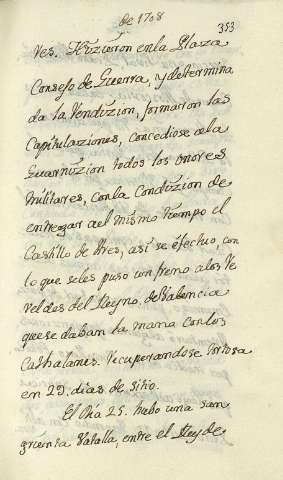 de 1708
353
Ves. Hizieron en la Plaza
Consejo de Guerra, y determina
da la Rendizion, formaron las
Capitulaziones, concediose a la
Guarnizion todos los onores
militares, con la Condizion de
entregar a el mismo tiempo el
Castillo de Ares, asi se éfectuo, con
lo que se les puso un freno a los Re
veldes del Reyno de Valencia
que se daban la mana con los
Cathalanes. Recuperandose Tortosa
en 29. dias de sitio.
El Dia 25. hubo una san
grienta Vatalla, entre el Rey de